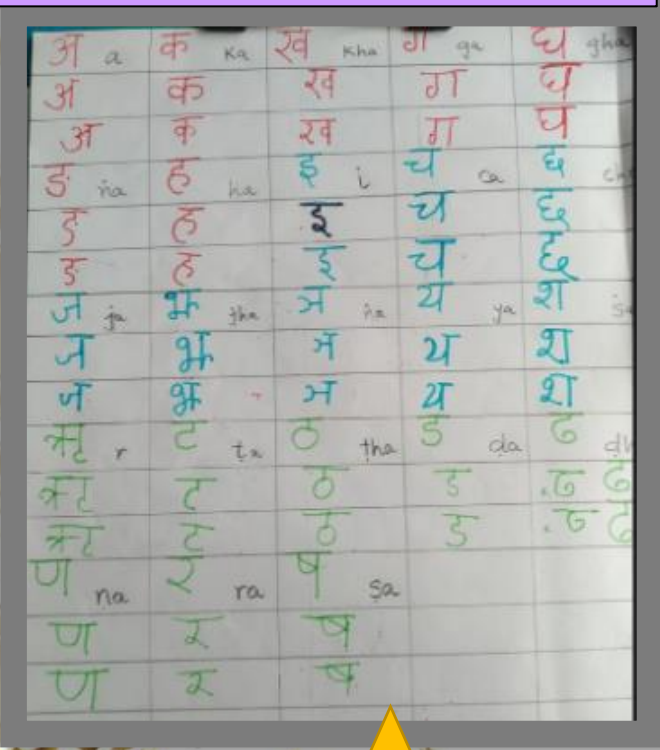 अ a क ka ख kha ग ga घ gha
अ क ख ग घ
अ क ख ग घ
ङ ṅa ह ha इ i च ca छ
ङ ह इ च छ
ङ ह इ च छ
ज ja झ jha ञ ña य ya श
ज झ ञ य श
ज झ ञ य श
ऋ r ट ṭa ठ ṭha ड ḍa ढ
ऋ ट ठ ड ढ ढ
ऋ ट ठ ड ढ ढ
ण na र ra ष ṣa
ण र ष
ण र ष